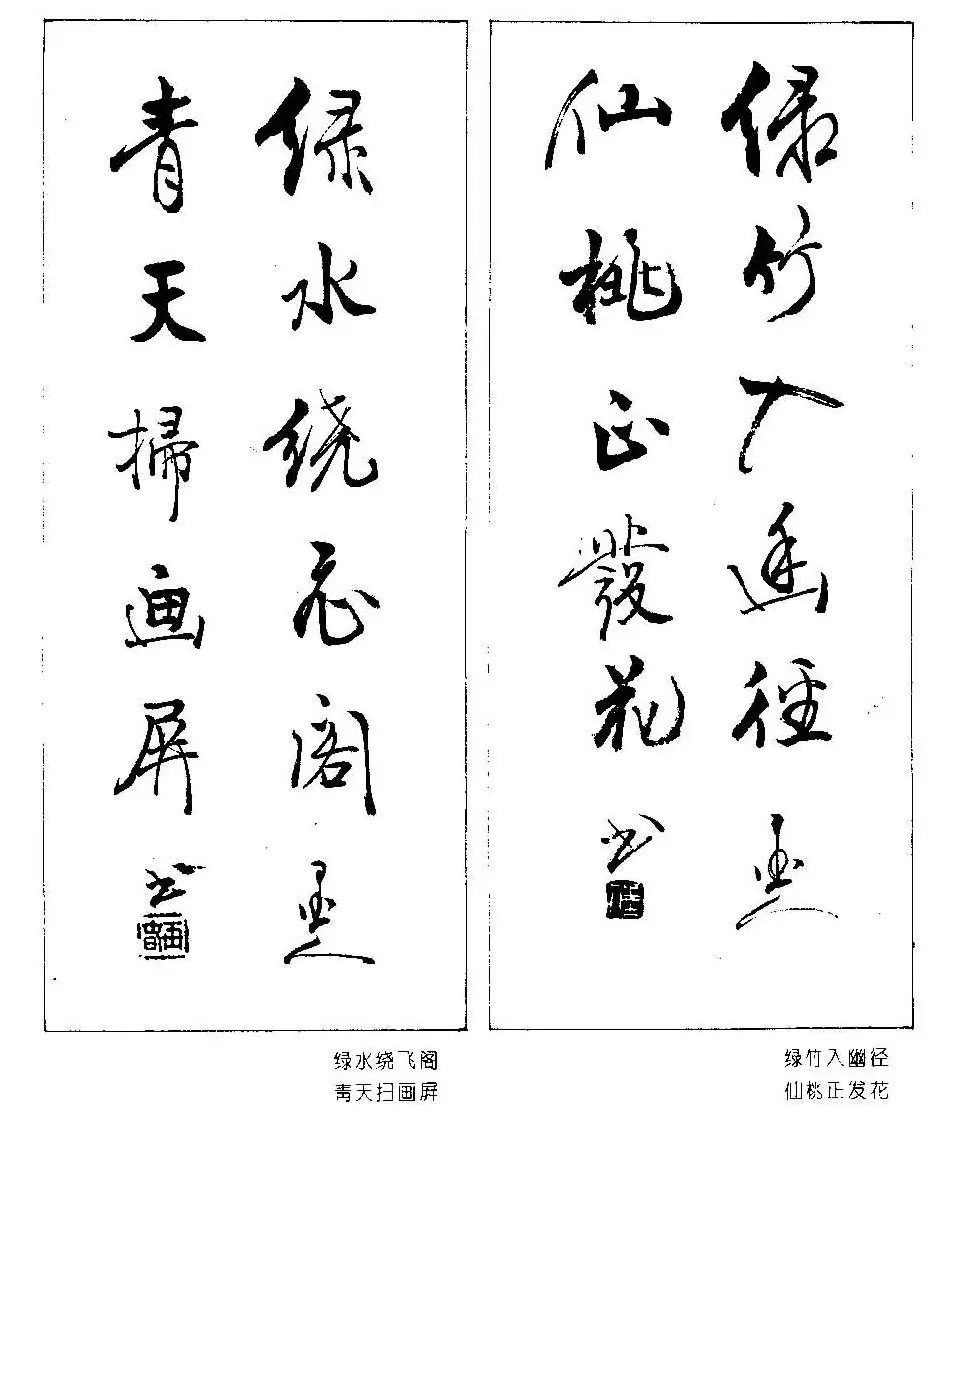 绿竹入幽径墨人
仙桃正發花书
绿水绕飞阁墨人
青天掃画屏书
绿竹入幽径
仙桃正发花
绿水绕飞阁
青天扫画屏